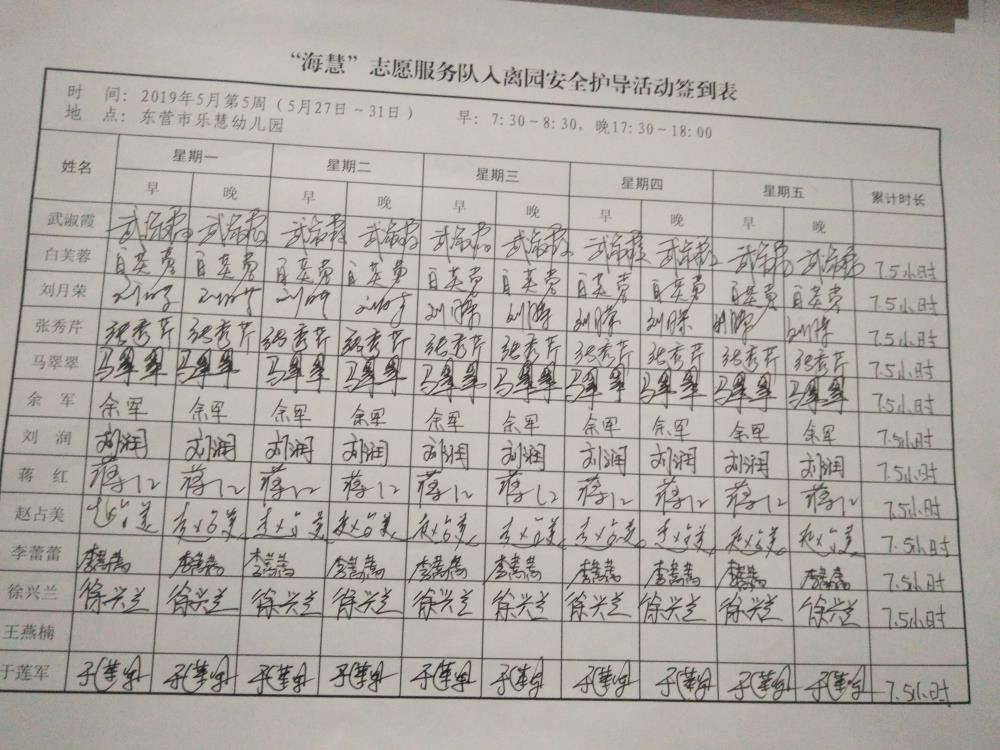 “海慧”志愿服务队入离园安全护导活动签到表
时 间：2019年5月第5周（5月27日～31日） 早：7:30～8:30，晚17:30～18:00
地 点：东营市乐慧幼儿园
姓名 星期一 星期二 星期三 星期四 星期五 累计时长
早 晚 早 晚 早 晚 早 晚 早 晚
武淑霞 武淑霞 武淑霞 武淑霞 武淑霞 武淑霞 武淑霞 武淑霞 武淑霞 武淑霞 武淑霞 7.5小时
白芙蓉 7.5小时
刘月荣 7.5小时
张秀芹 张秀芹 张秀芹 张秀芹 张秀芹 张秀芹 张秀芹 张秀芹 张秀芹 张秀芹 张秀芹 7.5小时
马翠翠 马翠翠 马翠翠 马翠翠 马翠翠 马翠翠 马翠翠 马翠翠 马翠翠 马翠翠 马翠翠 7.5小时
余 军 余军 余军 余军 余军 余军 余军 余军 余军 余军 余军 7.5小时
刘 润 刘润 刘润 刘润 刘润 刘润 刘润 刘润 刘润 刘润 刘润 7.5小时
蒋 红 蒋红 蒋红 蒋红 蒋红 蒋红 蒋红 蒋红 蒋红 蒋红 蒋红 7.5小时
赵占美 赵占美 赵占美 赵占美 赵占美 赵占美 赵占美 赵占美 赵占美 赵占美 赵占美 7.5小时
李蕾蕾 李蕾蕾 李蕾蕾 李蕾蕾 李蕾蕾 李蕾蕾 李蕾蕾 李蕾蕾 李蕾蕾 李蕾蕾 李蕾蕾 7.5小时
徐兴兰 徐兴兰 徐兴兰 徐兴兰 徐兴兰 徐兴兰 徐兴兰 徐兴兰 徐兴兰 徐兴兰 徐兴兰 7.5小时
王燕楠
于莲军 于莲军 于莲军 于莲军 于莲军 于莲军 于莲军 于莲军 于莲军 于莲军 于莲军 7.5小时